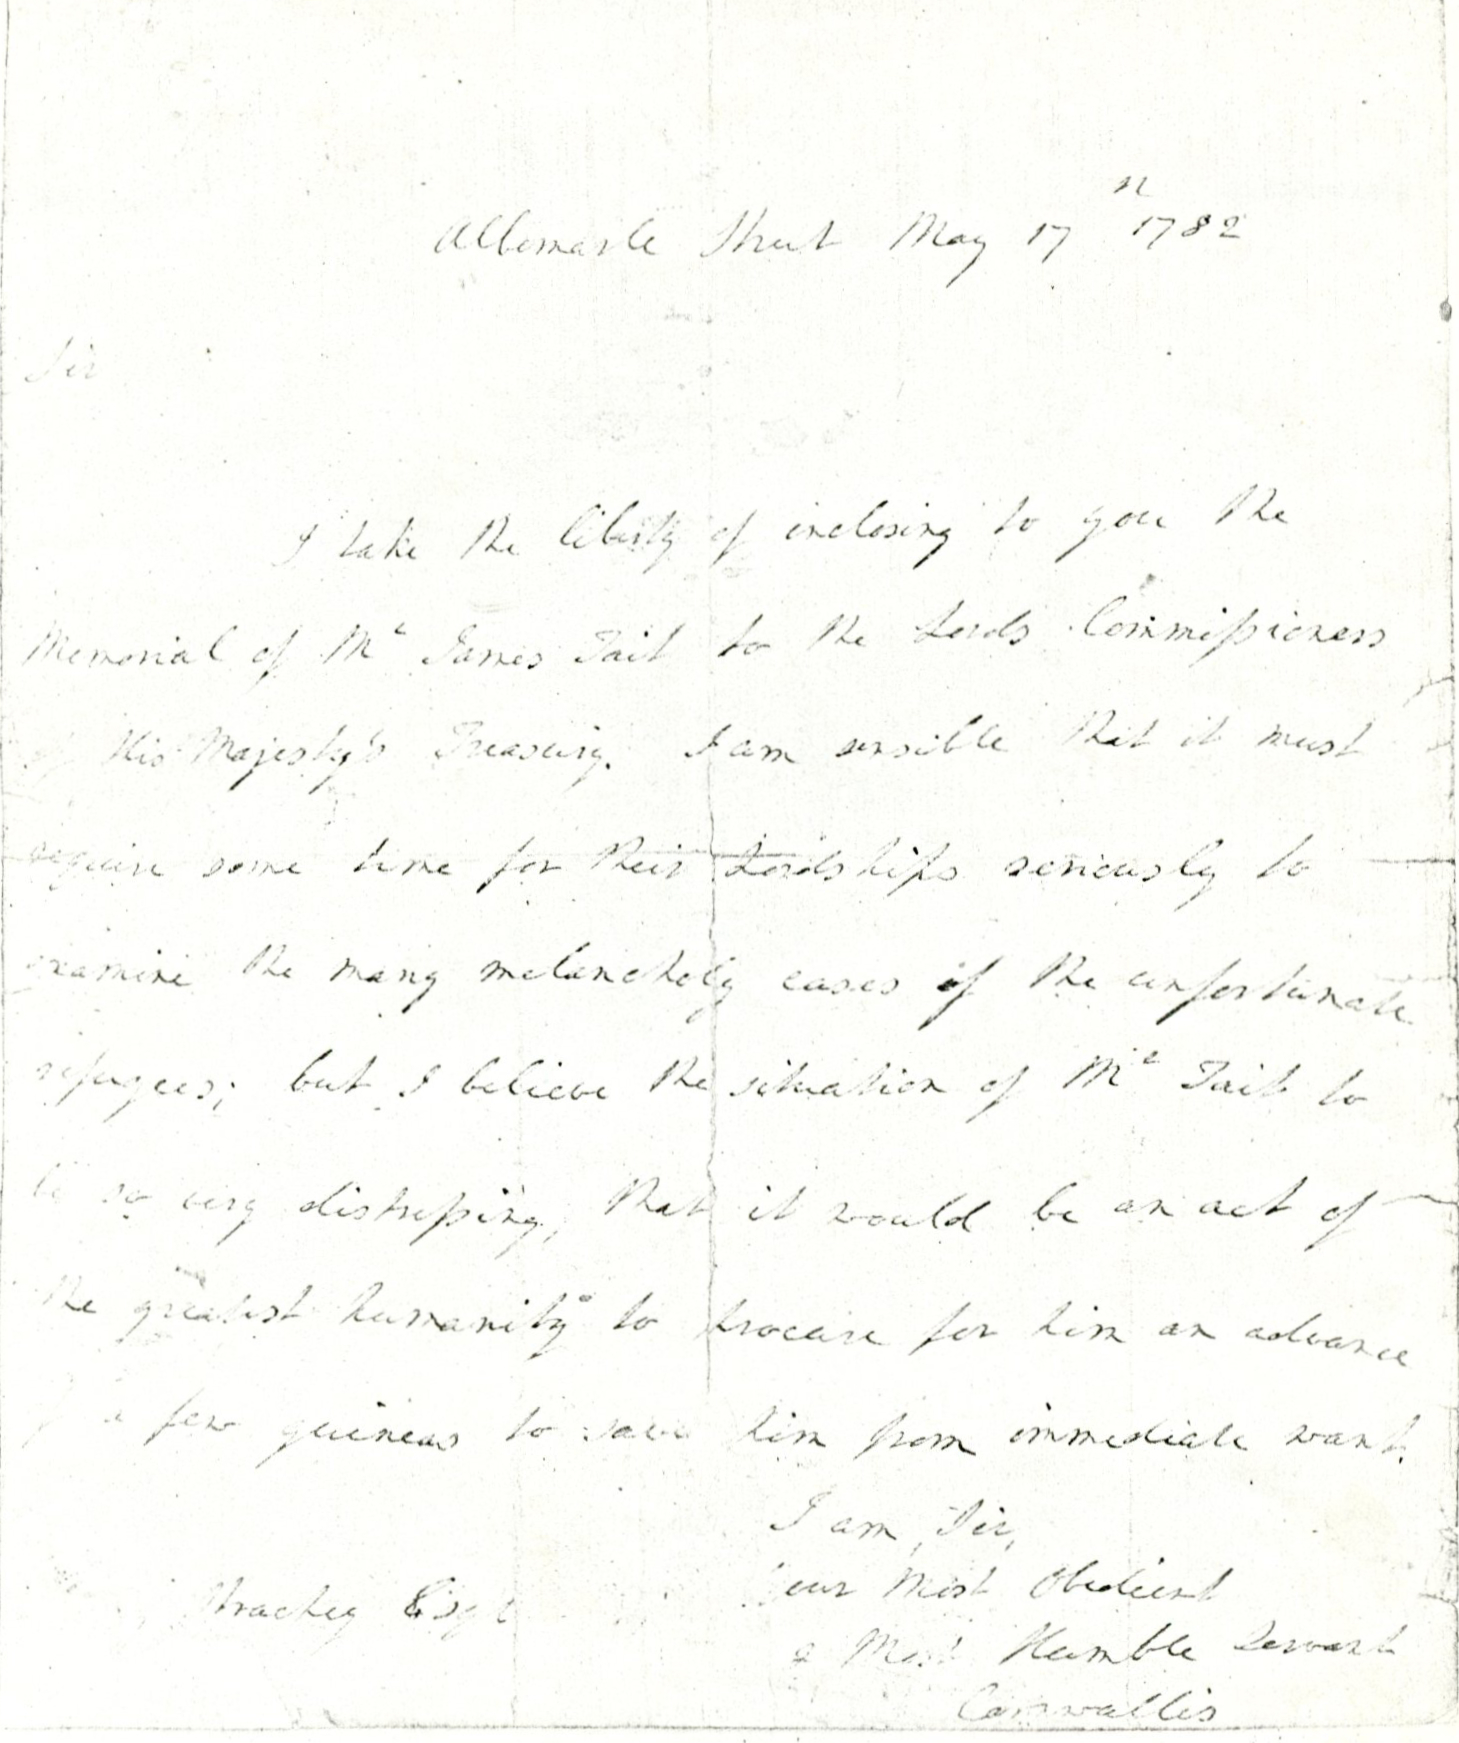 Albemarle Street May 17th 1782
Sir
I take the liberty of inclosing to you the
Memorial of Mr James Tait to the Lords Commissioners
of His Majesty's Treasury. I am sensible that it must
require some time for their Lordships seriously to
examine the many melancholy cases of the unfortunate
refugees; but I believe the situation of Mr Tait to
be so very distressing, that it would be an act of
the greatest humanity to procure for him an advance
of a few guineas to save him from immediate want.
I am, Sir,
your Most Obedient
& Most Humble Servant
Cornwallis
Strachey Esqr